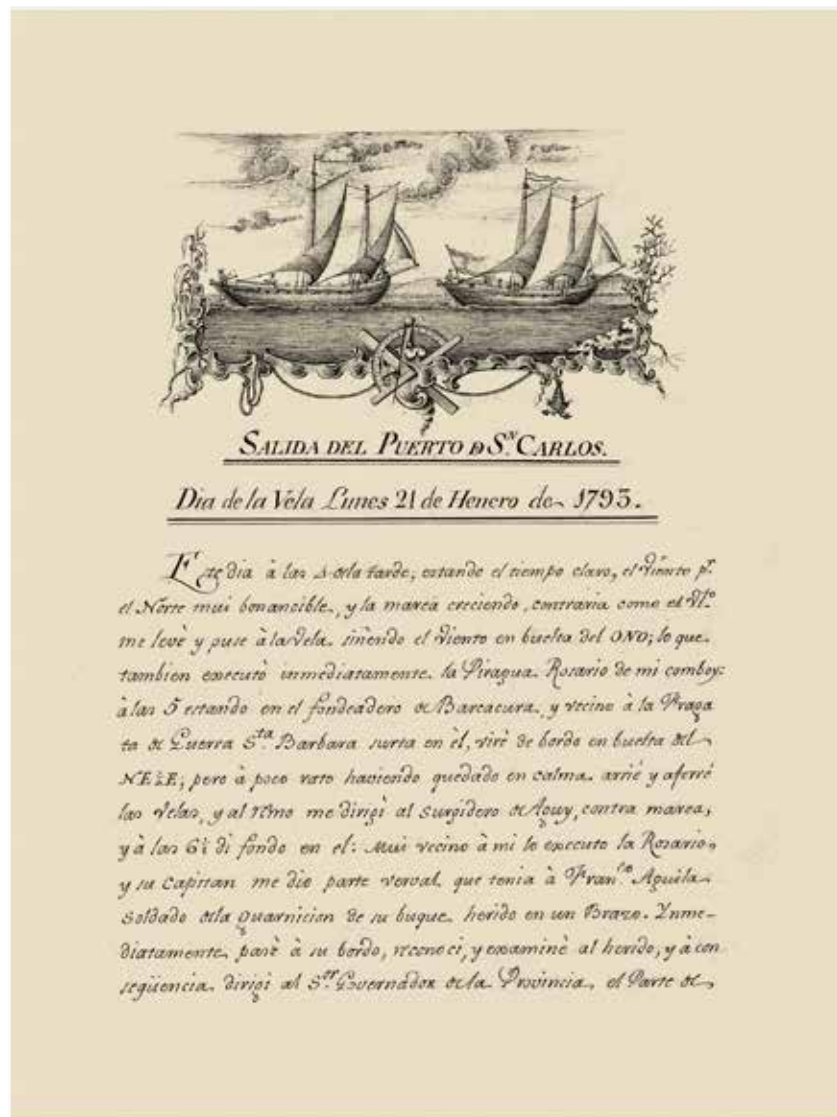 SALIDA DEL PUERTO D S.N CARLOS.
Dia de la Vela Lunes 21 de Henero de 1793.
Este dia à las 4 de la tarde, estando el tiempo claro, el viento p.r
el Norte mui bonancible, y la marea creciendo, contraria como el v.to
me levè y puse à la vela siñendo el viento en buelta del ONO; lo que
tambien executò inmediatamente la Piragua Rosario de mi comboy:
à las 5 estando en el fondeadero de Barcacura, y vecino à la Fraga
ta de Guerra S.ta Barbara surta en èl, virè de bordo en buelta del
NE¼E; pero à poco rato haviendo quedado en calma arriè y aferrè
las velas, y al remo me dirigì al surgidero de Aguy, contra marea,
y à las 6½ di fondo en el: Mui vecino à mi lo executo la Rosario,
y su Capitan me dio parte verval que tenia à Fran.co Aguila
Soldado de la Guarnicion de su buque herido en un Brazo. Ynme-
diatamente pasè à su bordo, reconoci, y examinè al herido, y à con
seqüencia dirigì al S.or Governador de la Provincia, el Parte de